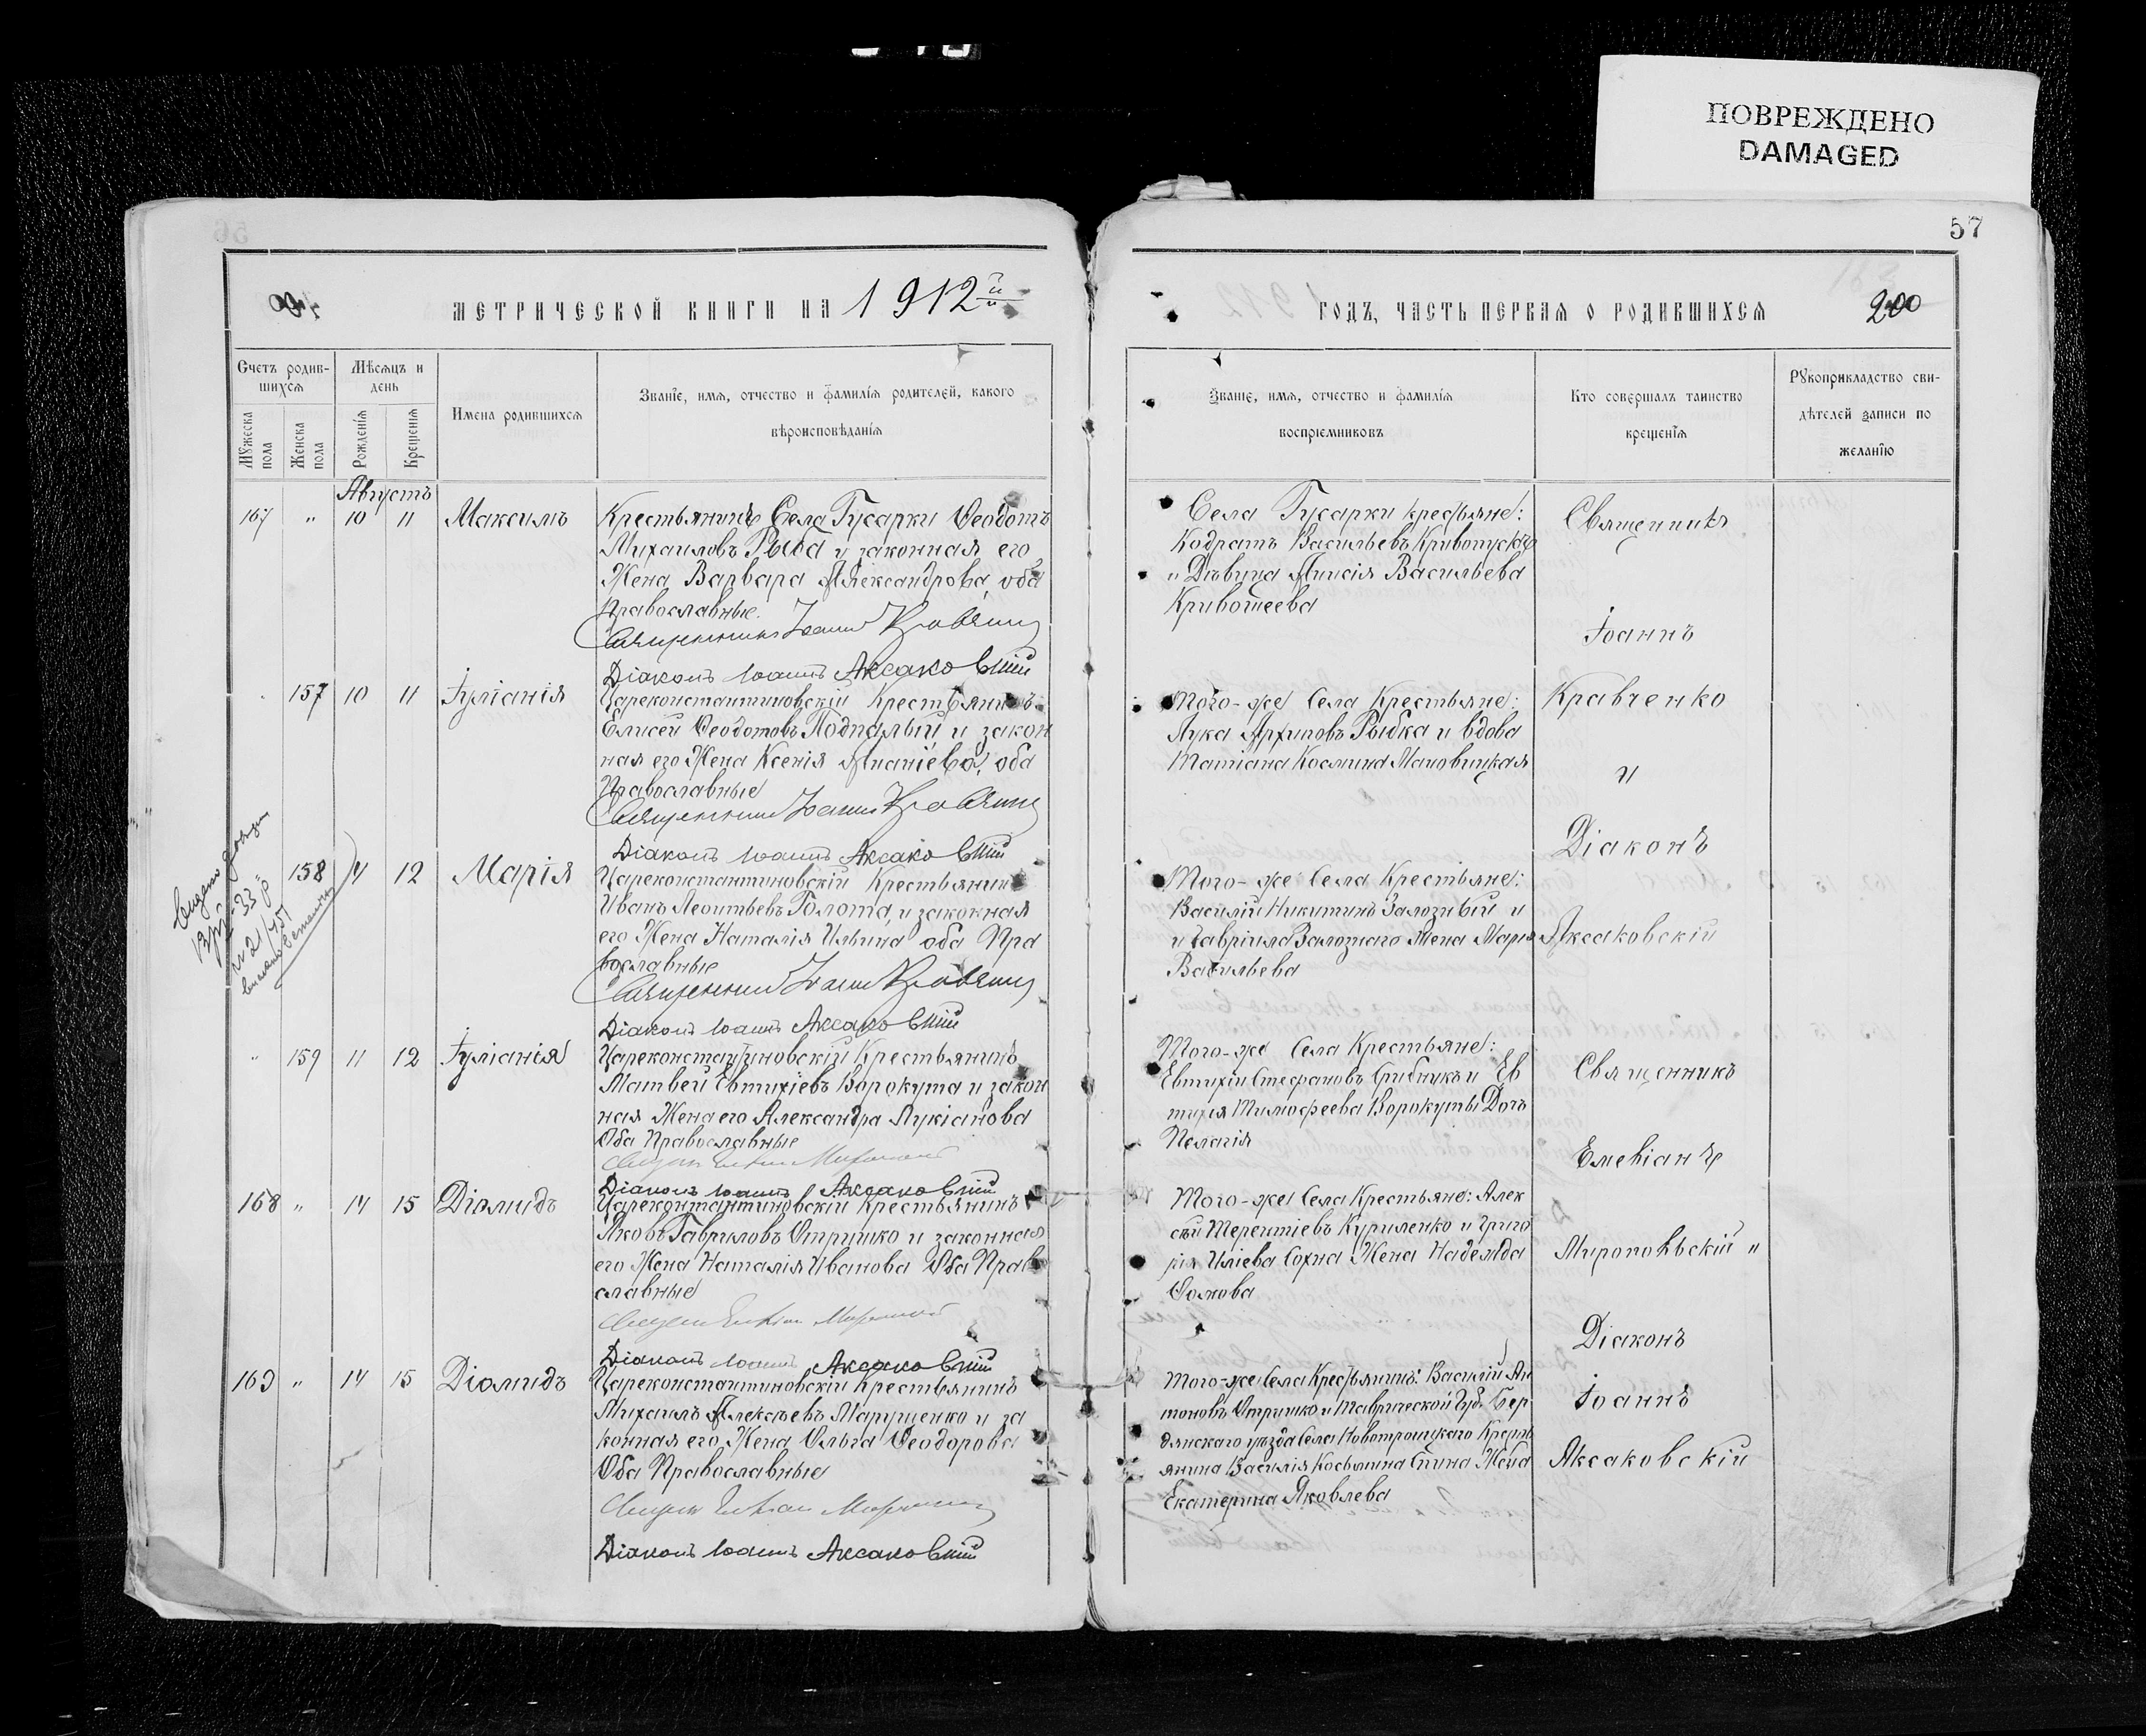 ПОВРЕЖДЕНО
DAMAGED
57
МЕТРИЧЕСКОЙ КНИГИ НА 1912й
ГОДЪ, ЧАСТЬ ПЕРВАЯ О РОДИВШИХСЯ
200
Счетъ родив-
шихся
Мѣсяцъ и
день
Мужеска
пола
Женска
пола
Рожденія
Крещенія
Имена родившихся
Званіе, имя, отчество и фамилія родителей, какого
вѣроисповѣданія
Званіе, имя, отчество и фамилія
воспріемниковъ
Кто совершалъ таинство
крещенія
Рукоприкладство сви-
дѣтелей записи по
желанію
Августъ
167 " 10 11 Максимъ
Крестьянинъ Села Гусарки Ѳеодотъ
Михаиловъ Рыба и законная его
Жена Варвара Александрова, оба
Православные.
Священникъ Іоаннъ Кравченко
Діаконъ Іоаннъ Аксаковскій
Села Гусарки крестьяне:
Кодратъ Васильевъ
и Дѣвица Анисія Васильева
Кривошеева
157 10 11 Іуліанія
Цареконстантиновскій Крестьянинъ
Елисей Ѳеодотовъ Подпалый и закон
ная его Жена Ксенія Ананіева, оба
Православные
Священникъ Іоаннъ Кравченко
Діаконъ Іоаннъ Аксаковскій
Того-же Села Крестьяне:
Лука Архиповъ Рыбка и вдова
Татіана Космина
158 4 12 Марія
Цареконстантиновскій Крестьянинъ
Иванъ Леонтьевъ Голота, и законная
его Жена Наталія Ильина оба Пра
вославные
Священникъ Іоаннъ Кравченко
Діаконъ Іоаннъ Аксаковскій
Того-же Села Крестьяне:
Василій Никитинъ Залозный и
и Гавріила Залознаго Жена Марія
Васильева
" 159 11 12 Іуліанія
Цареконстантиновскій Крестьянинъ
Матвей Евтихіевъ Ворокута и закон
ная Жена его Александра Лукіанова
Оба Православные
Діаконъ Іоаннъ Аксаковскій
Того-же Села Крестьяне:
Евтихій Стефановъ Грибникъ и Ев
тихія Тимофеева Ворокуты Дочь
Пелагія
168 " 14 15 Діомидъ
Цареконстантиновскій Крестьянинъ
Яковъ Гавриловъ Отришко и законная
его Жена Наталія Иванова Оба Право
славные
Діаконъ Іоаннъ Аксаковскій
Того-же Села Крестьяне: Алек
сѣй Терентіевъ Куриленко и Григо
рія Иліева Сохна Жена Надежда
Ѳомова
169 " 14 15 Діомидъ
Цареконстантиновскій Крестьянинъ
Михаилъ Алексѣевъ Марущенко и за
конная его Жена Ольга Ѳеодорова
Оба Православные
Діаконъ Іоаннъ Аксаковскій
Того-же Села Крестьянинъ: Василій Ан
тоновъ Отришко и Таврической Губ. Бер
дянскаго уѣзда Села Новотроицкаго Крестья
янина Василія Косьмина Спина Жена
Екатерина Яковлева
Священникъ
Іоаннъ
Кравченко
и
Діаконъ
Аксаковскій
Священникъ
Емеліанъ
Миропольскій "
Діаконъ
Іоаннъ
Аксаковскій